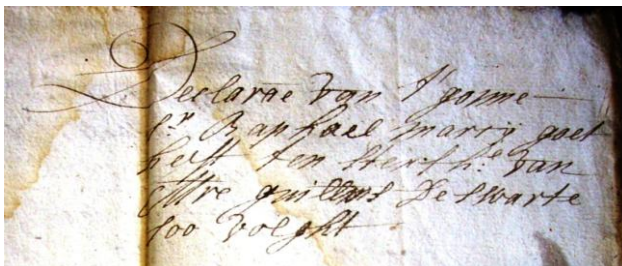 Declarae van t' gonne
Sr. Raphael marrij goet
heeft ten sterfh.e van
Mre guill.us De swarte
soo volght